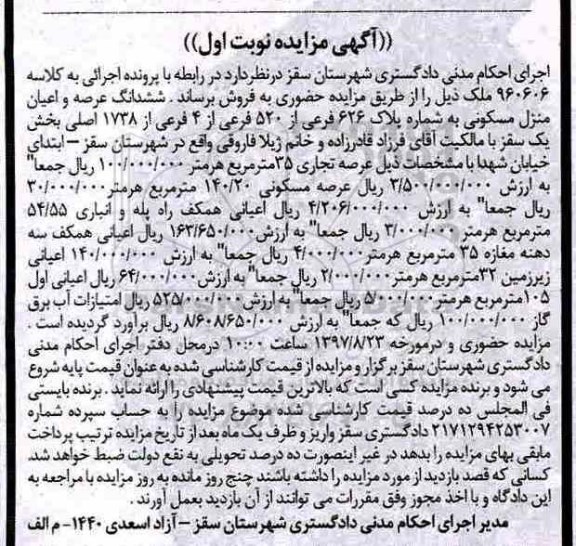 ((آگهی مزایده نوبت اول))
اجرای احکام مدنی دادگستری شهرستان سقز درنظردارد در رابطه با پرونده اجرائی به کلاسه
۹۶۰۶۰۶ ملک ذیل را از طریق مزایده حضوری به فروش برساند . ششدانگ عرصه و اعیان
منزل مسکونی به شماره پلاک ۶۲۶ فرعی از ۵۲۰ فرعی از ۴ فرعی از ۱۷۳۸ اصلی بخش
یک سقز با مالکیت آقای فرزاد قادرزاده و خانم ژیلا فاروقی واقع در شهرستان سقز – ابتدای
خیابان شهدا با مشخصات ذیل عرصه تجاری ۳۵مترمربع هرمتر ۱۰۰/۰۰۰/۰۰۰ ریال جمعا"
به ارزش ۳/۵۰۰/۰۰۰/۰۰۰ ریال عرصه مسکونی ۱۴۰/۲۰ مترمربع هرمتر۳۰/۰۰۰/۰۰۰
ریال جمعا" به ارزش ۴/۲۰۶/۰۰۰/۰۰۰ ریال اعیانی همکف راه پله و انباری ۵۴/۵۵
مترمربع هرمتر ۳/۰۰۰/۰۰۰ ریال جمعا" به ارزش۱۶۳/۶۵۰/۰۰۰ ریال اعیانی همکف سه
دهنه مغازه ۳۵ مترمربع هرمتر۴/۰۰۰/۰۰۰ ریال جمعا" به ارزش ۱۴۰/۰۰۰/۰۰۰ اعیانی
زیرزمین ۳۲مترمربع هرمتر۲/۰۰۰/۰۰۰ ریال جمعا" به ارزش۶۴/۰۰۰/۰۰۰ ریال اعیانی اول
۱۰۵مترمربع هرمتر۵/۰۰۰/۰۰۰ ریال جمعا" به ارزش۵۲۵/۰۰۰/۰۰۰ ریال امتیازات آب برق
گاز ۱۰۰/۰۰۰/۰۰۰ ریال که جمعا" به ارزش ۸/۶۰۸/۶۵۰/۰۰۰ ریال برآورد گردیده است .
مزایده حضوری و درمورخه ۱۳۹۷/۸/۲۳ ساعت ۱۰:۰۰ درمحل دفتر اجرای احکام مدنی
دادگستری شهرستان سقز برگزار و مزایده از قیمت کارشناسی شده به عنوان قیمت پایه شروع
می شود و برنده مزایده کسی است که بالاترین قیمت پیشنهادی را ارائه نماید . برنده بایستی
فی المجلس ده درصد قیمت کارشناسی شده موضوع مزایده را به حساب سپرده شماره
۲۱۷۱۲۹۴۲۵۳۰۰۷ دادگستری سقز واریز و ظرف یک ماه بعد از تاریخ مزایده ترتیب پرداخت
مابقی بهای مزایده را بدهد در غیر اینصورت ده درصد تحویلی به نفع دولت ضبط خواهد شد
کسانی که قصد بازدید از مورد مزایده را داشته باشند چنج روز مانده به روز مزایده با مراجعه به
این دادگاه و با اخذ مجوز وفق مقررات می توانند از آن بازدید بعمل آورند .
مدیر اجرای احکام مدنی دادگستری شهرستان سقز – آزاد اسعدی ۱۴۴۰- م الف